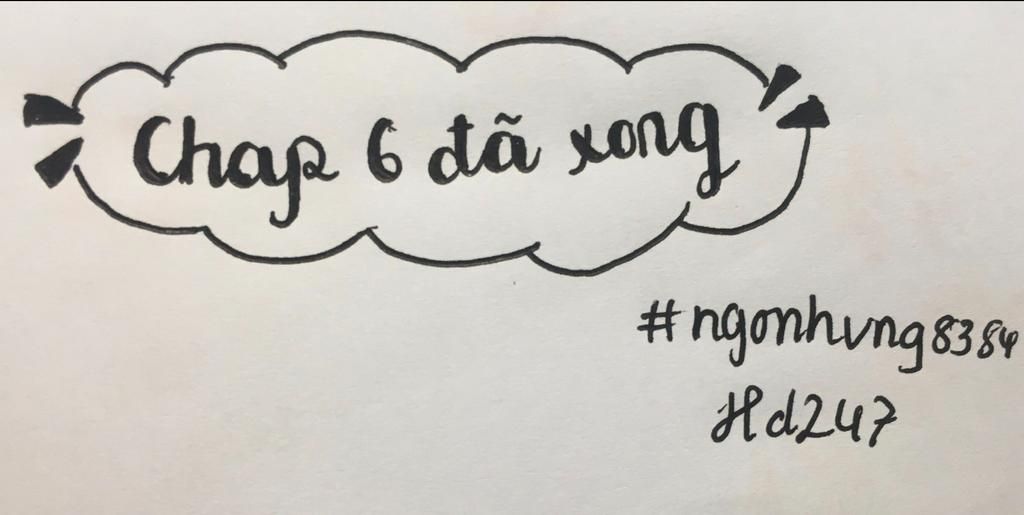 Chap 6 đã xong
#ngonhvng8384
Hd247